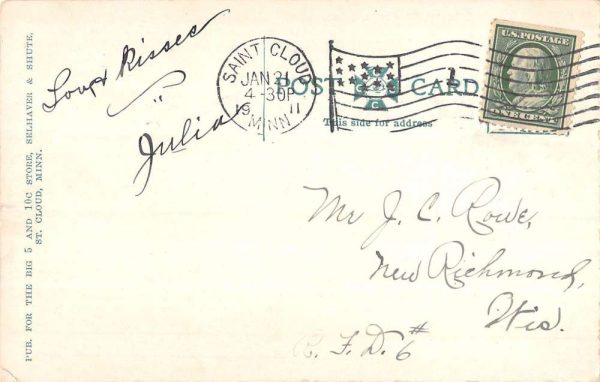 Love & Kisses
"
Julia
SAINT CLOUD
JAN 21
4-30P
19 11
MINN
POST CARD
This side for address
1
U.S. POSTAGE
ONE CENT
Mr J. C. Rowe,
New Richmond,
Wis.
R. F. D. #6
PUB. FOR THE BIG 5 AND 10C STORE, SELHAVER & SHUTE,
ST. CLOUD, MINN.